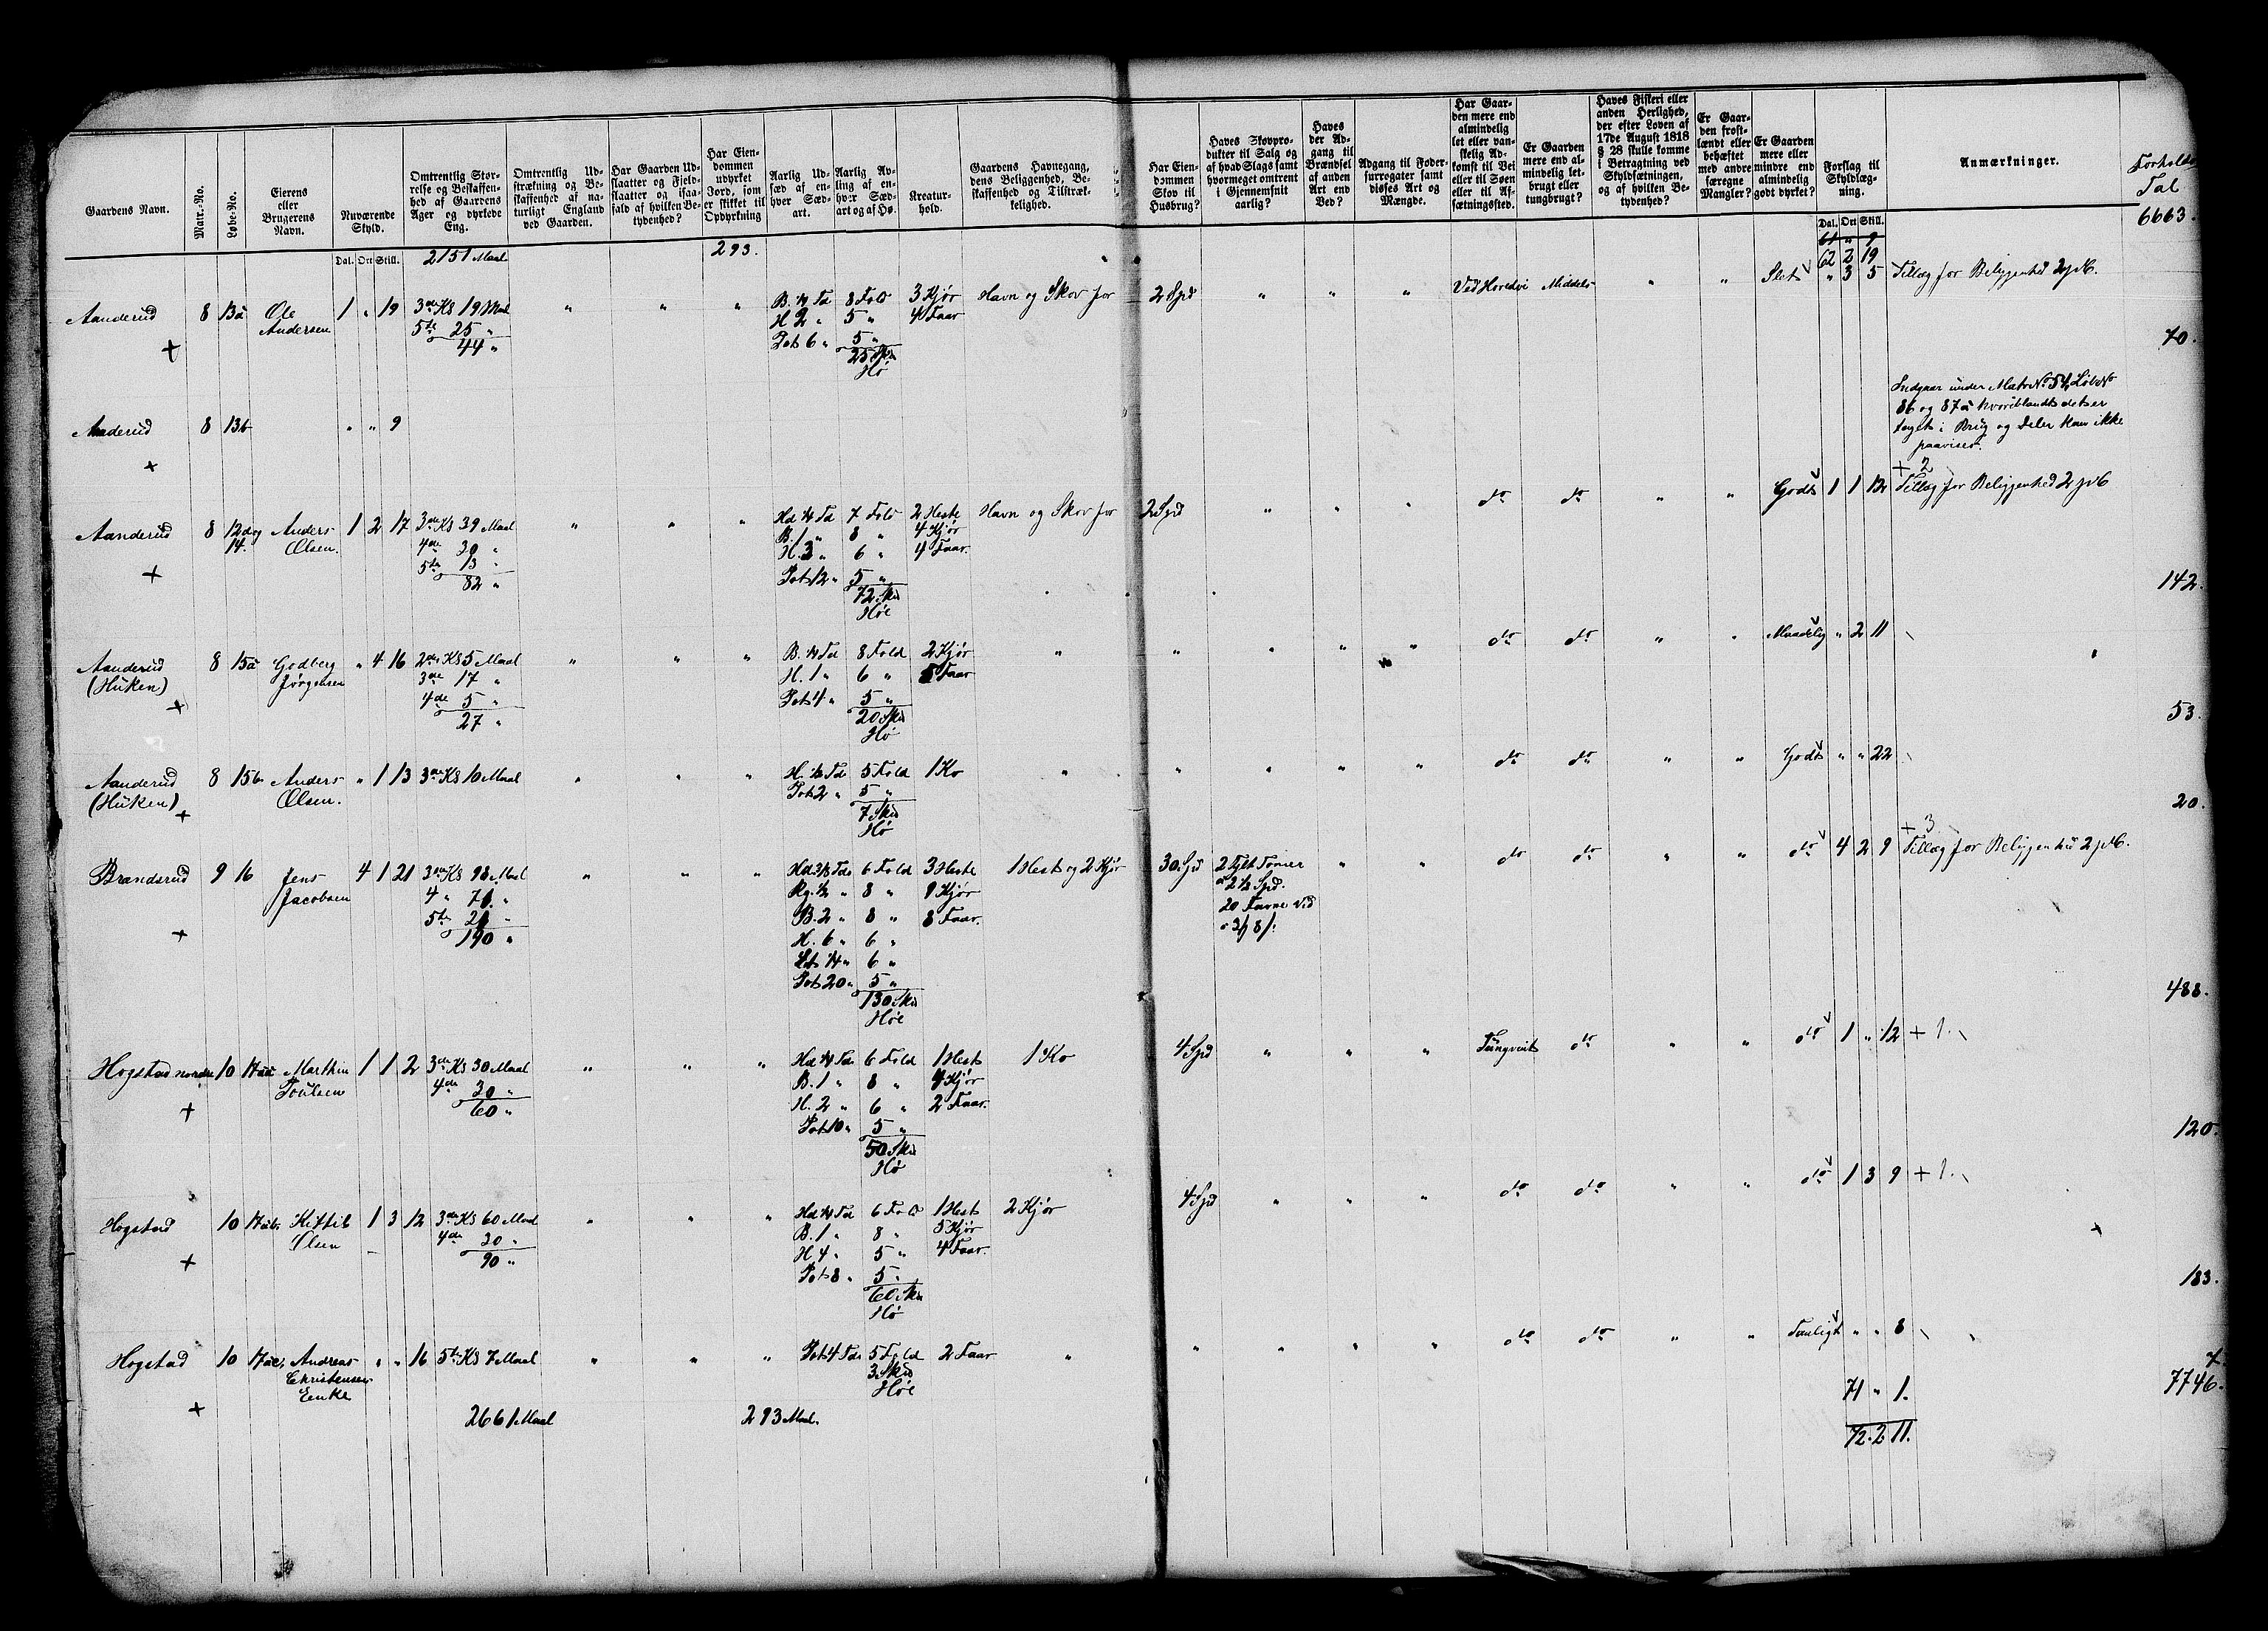 Gaardens Navn. Matr.-No. Løbe-No. Eierens eller Brugerens Navn. Nuværende Skyld. Omtrentlig Størrelse og Beskaffenhed af Gaardens Ager og dyrkede Eng. Omtrentlig Udstrækning og Beskaffenhed af naturligt England ved Gaarden. Har Gaarden Udslaatter og Fjeldslaatter og isaafald af hvilken Betydenhed? Har Eiendommen udyrket Jord, som er skikket til Opdyrkning Aarlig Udsæd af enhver Sædart. Aarlig Avling af enhver Sædart og af Hø. Kreaturhold. Gaardens Havnegang, dens Beliggenhed, Beskaffenhed og Tilstrækkelighed. Har Eiendommen Skov til Husbrug? Haves Skovprodukter til Salg og af hvad Slags samt hvormeget omtrent i Gjennemsnit aarlig? Haves der Adgang til Brændsel af anden Art end Ved? Adgang til Fodersurrogater samt disses Art og Mængde. Har Gaarden mere end almindelig let eller vanskelig Adkomst til Vei eller til Søen eller til Afsætningssted. Er Gaarden mere end almindelig letbrugt eller tungbrugt? Haves Fiskeri eller anden Herlighed, der efter Loven af 17de August 1818 § 28 skulle komme i Betragtning ved Skyldsætningen, og af hvilken Betydenhed? Er Gaarden frostlændt eller behæftet med andre særegne Mangler? Er Gaarden mere eller mindre end almindelig godt dyrket? Forslag til Skyldlægning. Anmærkninger. Forholds Tal
Dal. Ort Skill. 2151 Maal 293. Dal. Ort Skill. 6663.
61 " 9
62 2 19
Aanderud 8 13a Ole 1 " 19 3die Kl 19 Maal " " " B. 1/4 Td 8 Fold 3 Kjør Havn og Skov for 2 Spd " " " Ved Hovedvei Middels " " Slet " 3 5 Tillæg for Beliggenhed 2 pC.
Andersen 5te 25 " H 2 " 5 " 4 Faar
44 " Pot 6 " 5 " 70.
25 Skd
Hø
Aanderud 8 13b " " 9 Indgaar under Matr No 54 Løb No
86 og 87a hvoriblandt det er
taget i Brug og deler kan ikke
paavises.
+ 2
Aanderud 8 12d og Anders 1 2 17 3die Kl 39 Maal " " " Hd 1/4 Td 7 Fold 2 Heste Havn og Skov for 2 Spd " " " do do " " Godt 1 1 12 Tillæg for Beliggenhed 2 pC
14. Olsen. 4de 30 " B. 1 " 8 " 4 Kjør
5te 13 " H. 3 " 6 " 4 Faar.
82 " Pot 12 " 5 " 142.
72 Skd
Høe
Aanderud 8 15a Godberg " 4 16 2den Kl 5 Maal " " " B. 1/4 Td 8 Fold 2 Kjør " " " " do do " " Maadelig " 2 11
(Huken) Jørgensen 3die 17 " H. 1 " 6 " 5 Faar
4de 5 " Pot 4 " 5 "
27 " 20 Skd 53.
Hø
Aanderud 8 15b Anders " 1 13 3die Kl 10 Maal " " " H. 1/2 Td 5 Fold 1 Ko " " " " " do do " " Godt " " 22
(Huken) Olsen. Pot 2 " 5 " 20.
7 Skd
Hø
+ 3
Brandsrud 9 16 Jens 4 1 21 3die Kl 98 Maal " " " Hd 3/8 Td 6 Fold 3 Heste 1 Hest og 2 Kjør 30 Spd 2 Tylt Tømer " " do do " " do 4 2 9 Tillæg for Beliggenhed 2 pC.
Jacobsen 4 " 71 " Rg. 1/2 " 8 " 9 Kjør a 2 1/2 Spd.
5te 21 " B. 2 " 8 " 8 Faar. 20 Favne Ved
190 " H. 6 " 6 "
Pot 20 " 5 "
130 Skd 488.
Høe
Hogstad nordre 10 17aa Marthin 1 1 2 3die Kl 30 Maal " " " Hd 1/4 Td 6 Fold 1 Hest 1 Ko 4 Spd " " " Tungveit do " " do 1 " 12 + 1.
Poulsen 4de 30 " B. 1 " 8 " 4 Kjør
60 " H. 2 " 6 " 2 Faar.
Pot 10 " 5 " 120.
50 Skd
Hø
Hogstad 10 17ab Kittil 1 3 12 3die Kl 60 Maal " " " Hd 1/4 Td 6 Fold 1 Hest 2 Kjør 4 Spd " " " do do " " do 1 3 9 + 1.
Olsen 4de 30 " B. 1 " 8 " 5 Kjør
90 " H 4 " 5 " 4 Faar.
Pot 8 " 5 "
60 Skd 183.
Hø
Hogstad 10 17ac Andreas " " 16 5te Kl 7 Maal " " " Pot 4 Td 5 Fold 2 Faar " " " " " do do " " Taaligt " " 8
Christensens 3 Skd 7.
Enke Høe 71 " 1. 7746.
2661 Maal 293 Maal. 72. 2 11.